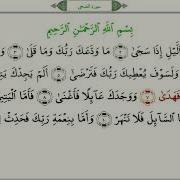 سورة الضحى
بِسْمِ ٱللَّهِ ٱلرَّحْمَٰنِ ٱلرَّحِيمِ
ٱلَّيْلِ إِذَا سَجَىٰ ٢ مَا وَدَّعَكَ رَبُّكَ وَمَا قَلَىٰ ٣ وَ
وَلَسَوْفَ يُعْطِيكَ رَبُّكَ فَتَرْضَىٰٓ ٥ أَلَمْ يَجِدْكَ يَتِ
فَهَدَىٰ ٧ وَوَجَدَكَ عَآئِلًا فَأَغْنَىٰ ٨ فَأَمَّا ٱلْيَتِيمَ
ا ٱلسَّآئِلَ فَلَا تَنْهَرْ ١٠ وَأَمَّا بِنِعْمَةِ رَبِّكَ فَحَدِّثْ ١١